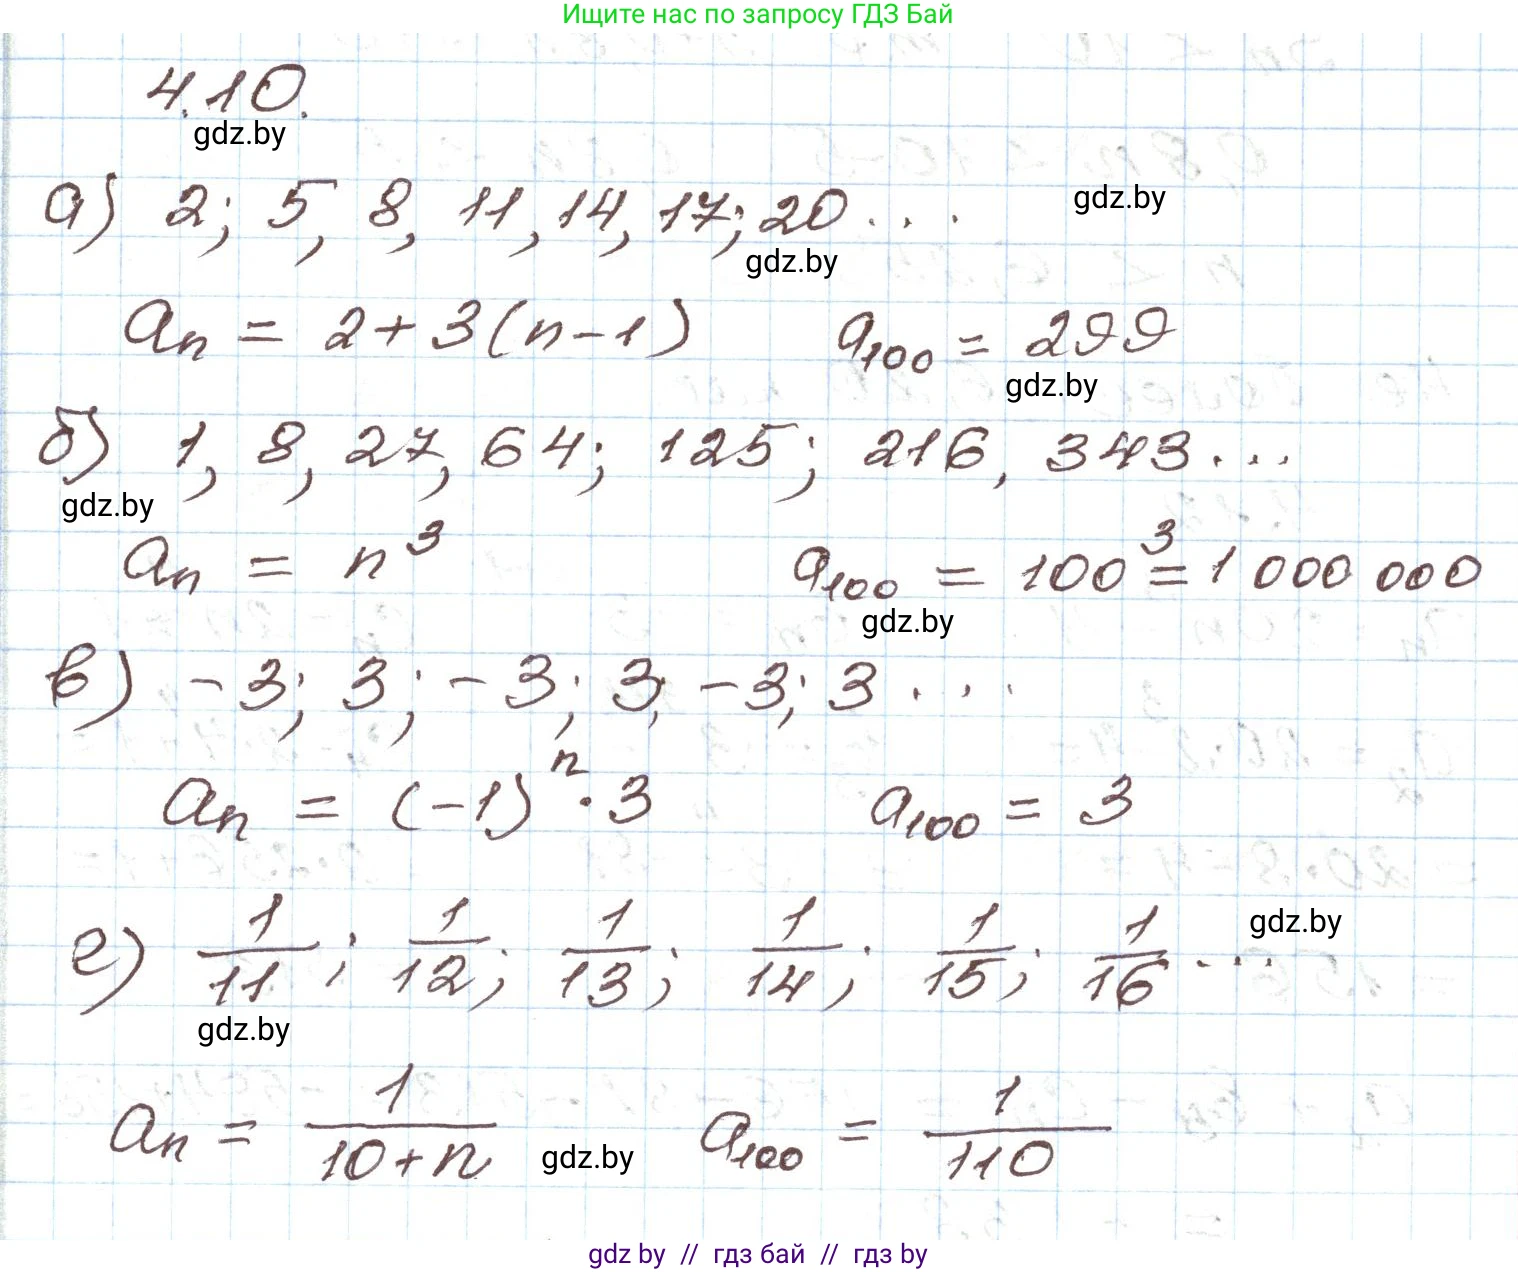 Ищите нас по запросу ГДЗ Бай
4.10.
gdz.by
а) 2; 5, 8, 11, 14, 17; 20 ...
gdz.by
gdz.by
aₙ = 2+3(n-1) a₁₀₀ = 299
gdz.by
б) 1, 8, 27, 64; 125; 216, 343...
gdz.by
aₙ = n³ a₁₀₀ = 100³ = 1 000 000
gdz.by
в) -3; 3; -3; 3; -3; 3 ...
aₙ = (-1)ⁿ · 3 a₁₀₀ = 3
г) 1/11; 1/12; 1/13; 1/14; 1/15; 1/16 ...
gdz.by
gdz.by
aₙ = 1/(10+n) a₁₀₀ = 1/110
gdz.by
gdz by // гдз бай // гдз by